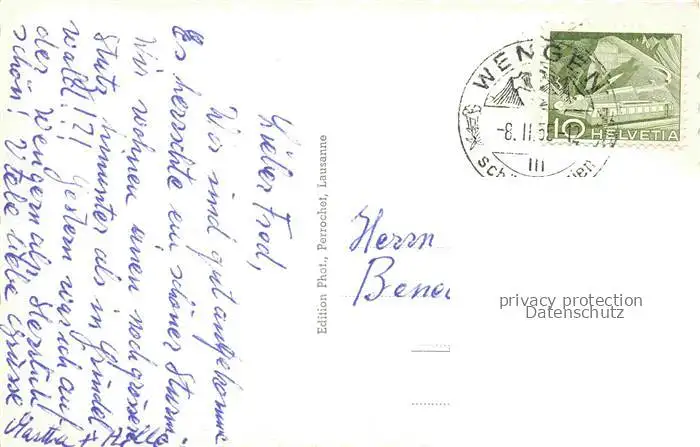 Lieber Fred,
Wir sind gut angekommen
Es herrschte ein schöner Sturm.
Wir wohnen einen noch grösseren
Stutz hinunter als in Grindel
wald!!! Gestern war ich auf
der Wengernalp. Herrlich
schön! Viele liebe Grüsse
Martha +
Edition Phot., Perrochet, Lausanne
WENGEN
-8.II.5
III
10
HELVETIA
Herrn
Bene
privacy protection
Datenschutz